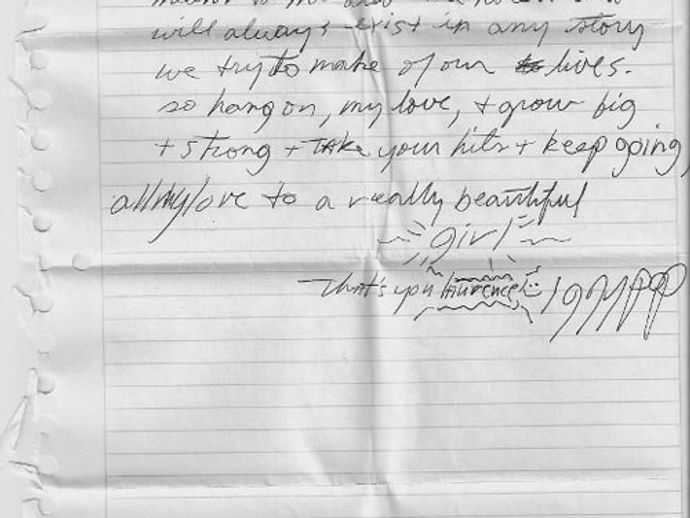 will always exist in any story
we try to make of our lives.
so hang on, my love, + grow big
+ strong + take your hits + keep going
all my love to a really beautiful
girl
That's you Laurence
iggy pop